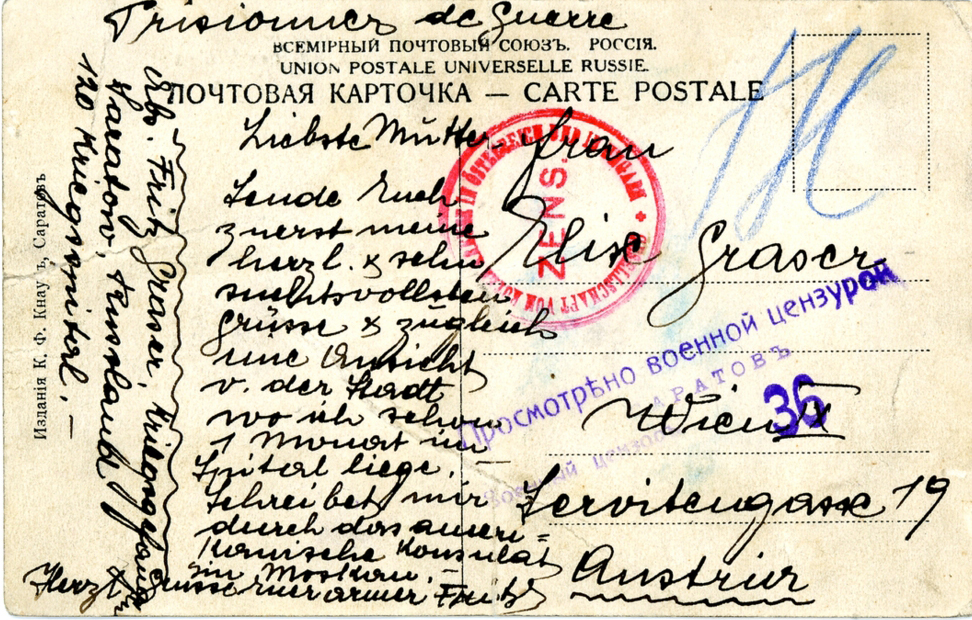 Prisionnier de Guerre
ВСЕМІРНЫЙ ПОЧТОВЫЙ СОЮЗЪ. РОССІЯ.
UNION POSTALE UNIVERSELLE RUSSIE.
ПОЧТОВАЯ КАРТОЧКА — CARTE POSTALE
Liebste Mutter
Sende Euch
zuerst meine
herzl. & sehn
suchtsvollsten
Grüsse & zugleich
eine Ansicht
v. der Stadt
wo ich schon
1 Monat im
Spital liege. —
Schreibet mir
durch das ameri=
kanische Konsulat
in Moskau. —
Herzl. Grüsse Euer armer Fritz
Frau
Elise Graser
Wien IX
Servitengasse 19
Austrier
Abs. Fritz Graser, Kriegsgefang
Saratow, Russland,
120 Kriegsspital. —
Изданія К. Ф. Кнаубъ, Саратовъ
ZENS.
Просмотрѣно военной цензурой
САРАТОВЪ
Военный цензоръ
36